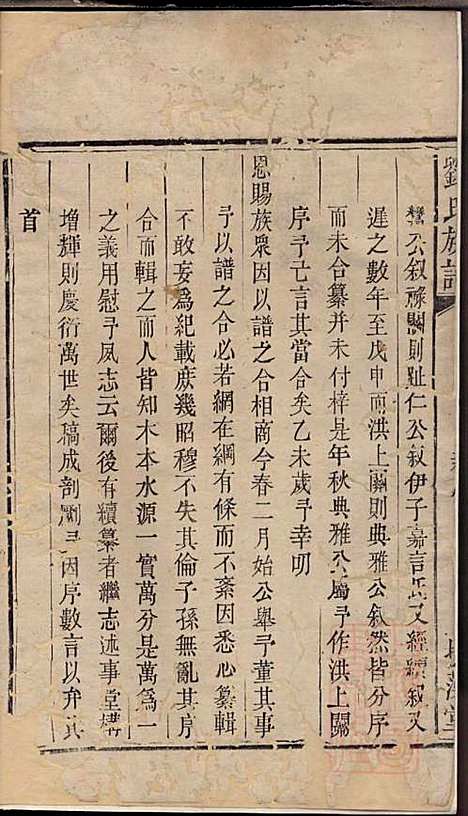 劉氏族譜
贊公叙祿關則趾仁公叙伊子嘉言 又經續叙又
遲之數年至戊申而洪上關則典雅公叙然皆分序
而未合纂并未付梓是年秋典雅公屬予作洪上關
序予已言其當合矣乙未歲予幸叨
恩賜族衆因以譜之合相商今春二月始公舉予董其事
予以譜之合必若網在綱有條而不紊因悉心纂輯
不敢妄爲紀載庶幾昭穆不失其倫子孫無亂其序
合而輯之而人皆知木本水源一實萬分是萬爲一
之義用慰予夙志云爾後有續纂者繼志述事堂構
增輝則慶衍萬世矣稿成剖劂予因序數言以弁其
首